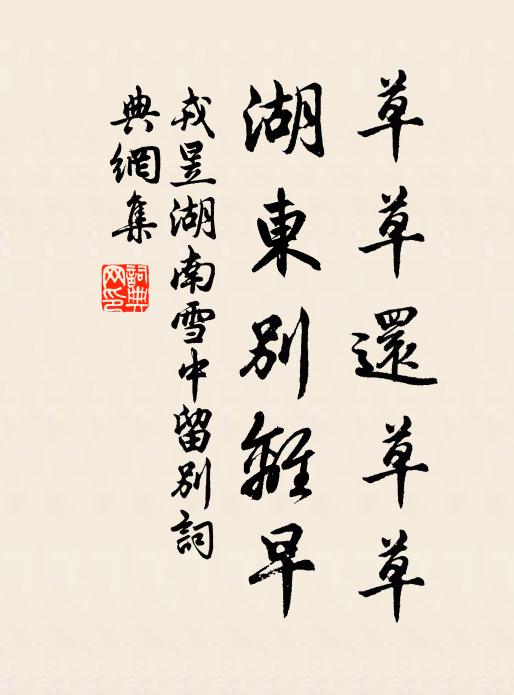 草草還草草
湖東別離早
戎昱湖南雪中留別詞
典網集
詞典網印